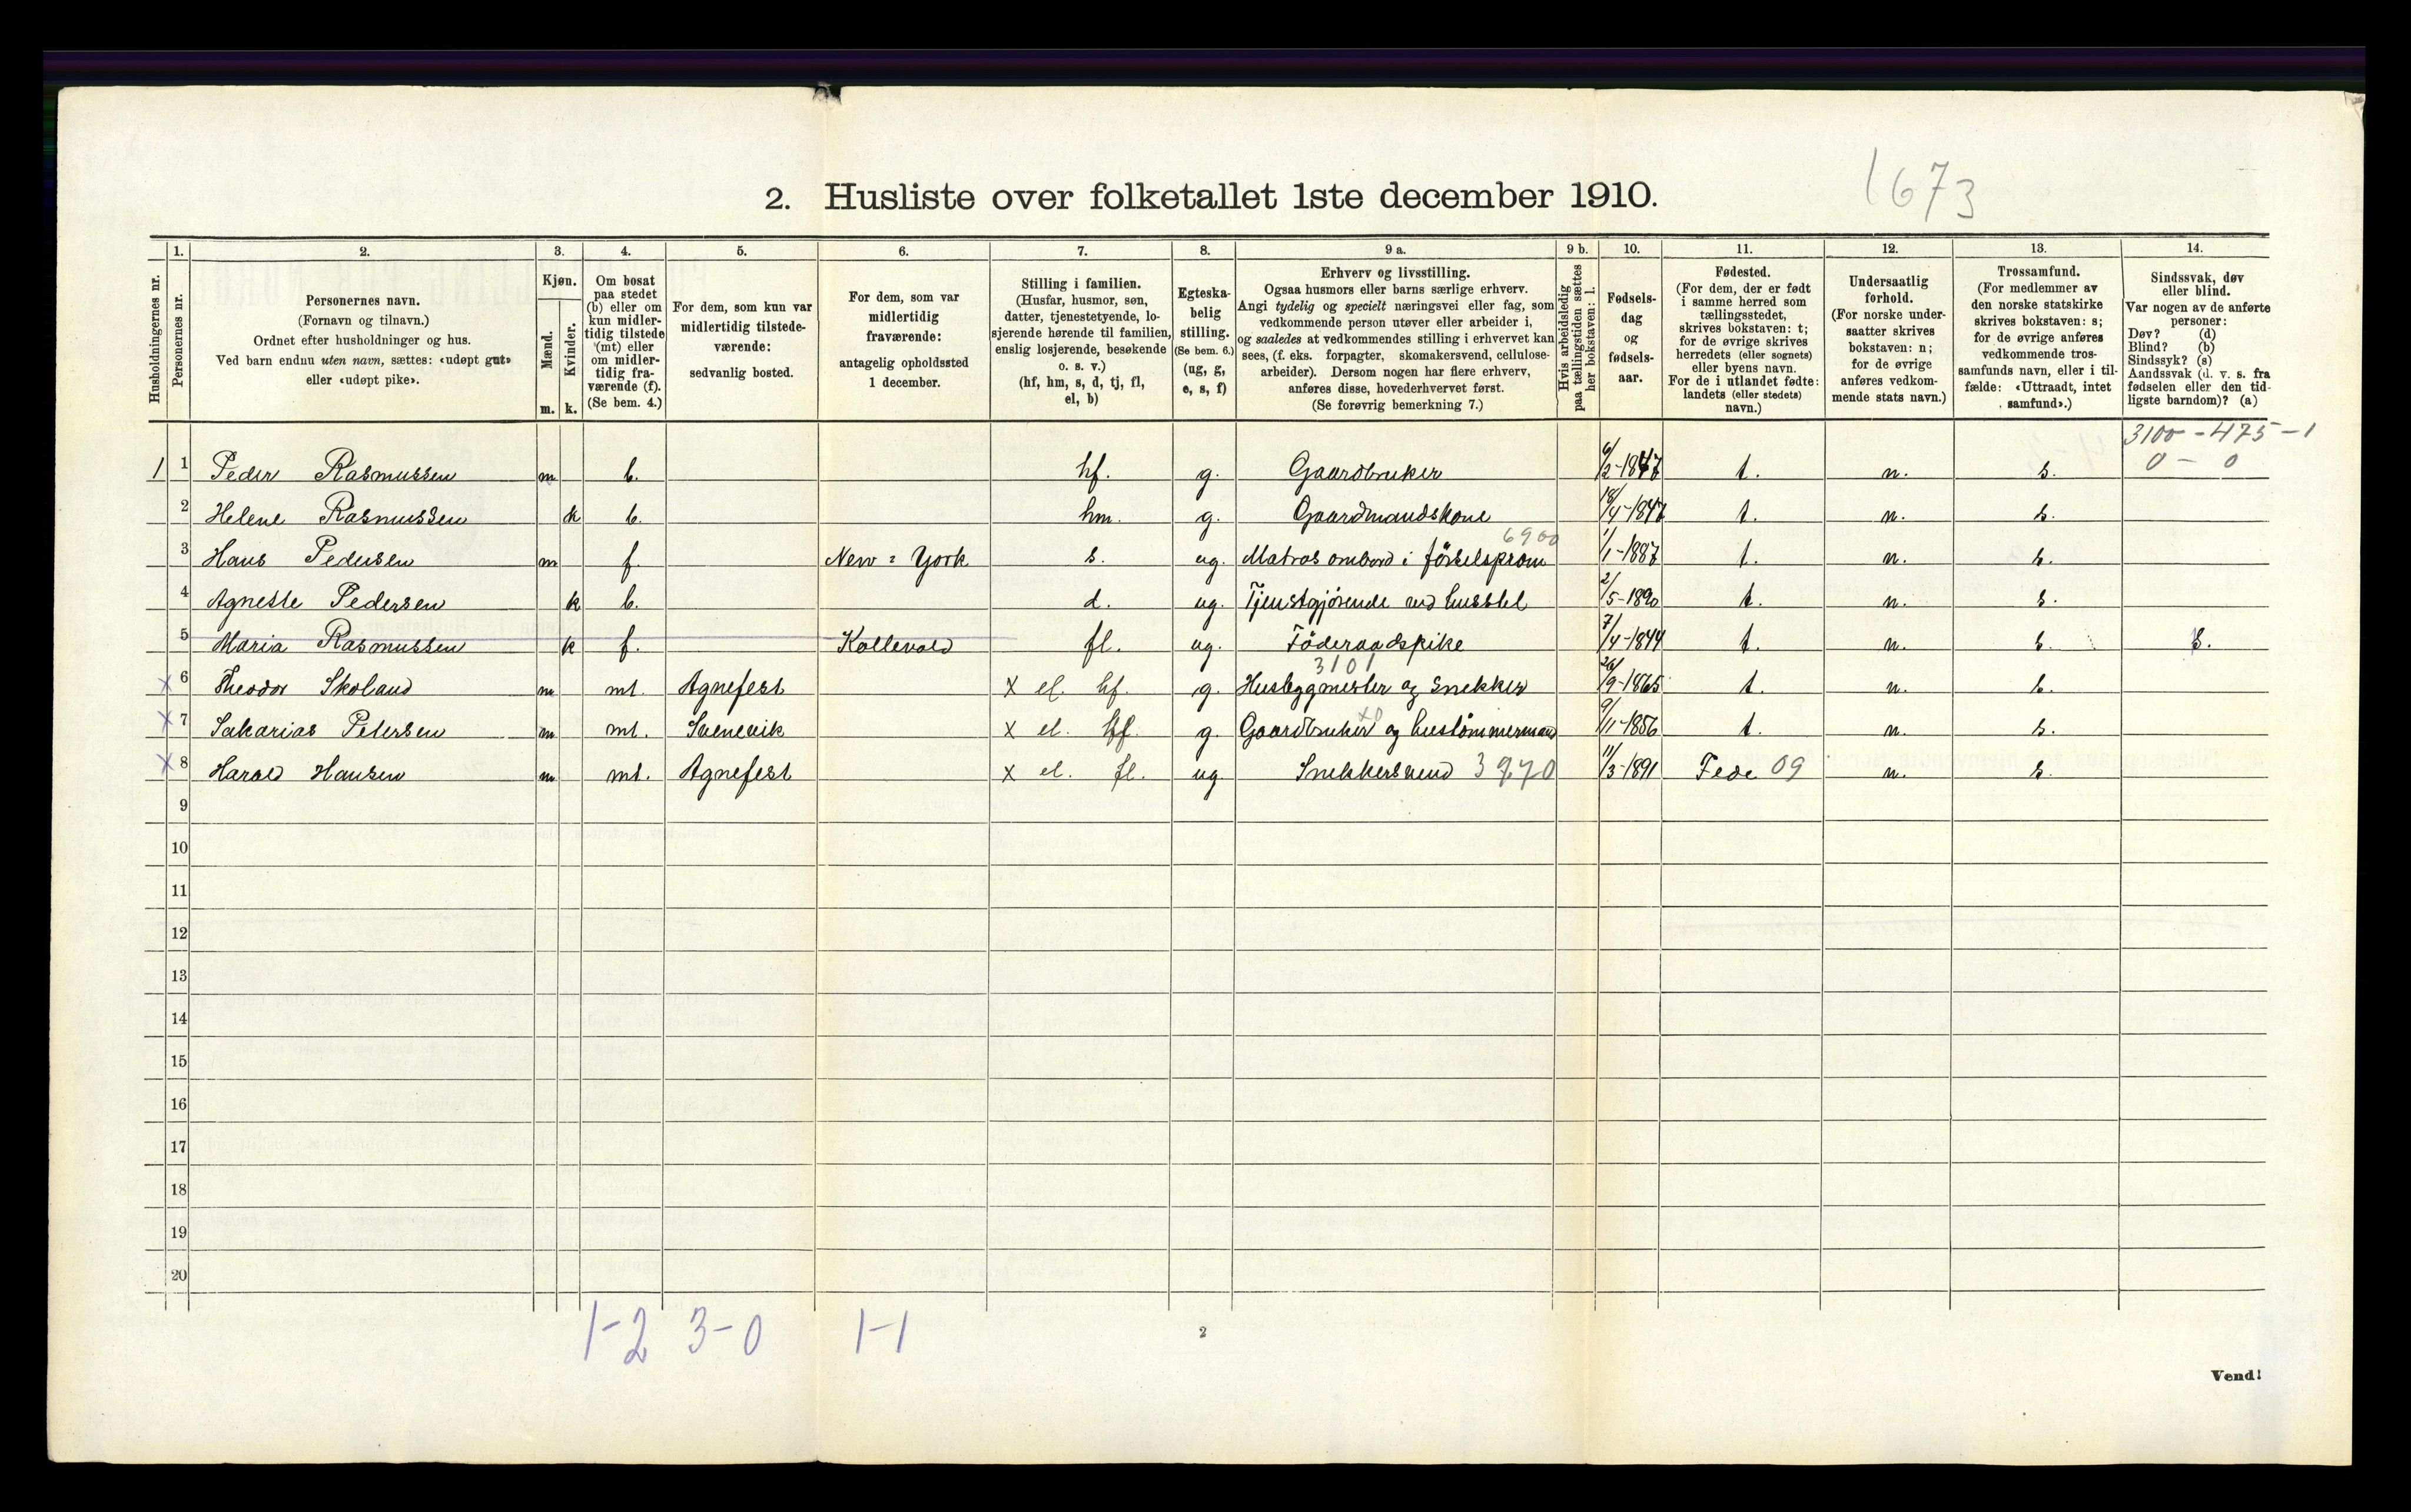 1673
2. Husliste over folketallet 1ste december 1910.
Husholdningernes nr.
1. Personernes nr.
2. Personernes navn.
(Fornavn og tilnavn.)
Ordnet efter husholdninger og hus.
Ved barn endnu uten navn, sættes: «udøpt gut»
eller «udøpt pike».
3. Kjøn.
Mænd. m.
Kvinder. k.
4. Om bosat
paa stedet
(b) eller om
kun midler-
tidig tilstede
(mt) eller
om midler-
tidig fra-
værende (f).
(Se bem. 4.)
5. For dem, som kun var
midlertidig tilstede-
værende:
sedvanlig bosted.
6. For dem, som var
midlertidig
fraværende:
antagelig opholdssted
1 december.
7. Stilling i familien.
(Husfar, husmor, søn,
datter, tjenestetyende, lo-
sjerende hørende til familien,
enslig losjerende, besøkende
o. s. v.)
(hf, hm, s, d, tj, fl,
el, b)
8. Egteska-
belig
stilling.
(Se bem. 6.)
(ug, g,
e, s, f)
9 a. Erhverv og livsstilling.
Ogsaa husmors eller barns særlige erhverv.
Angi tydelig og specielt næringsvei eller fag, som
vedkommende person utøver eller arbeider i,
og saaledes at vedkommendes stilling i erhvervet kan
sees, (f. eks. forpagter, skomakersvend, cellulose-
arbeider). Dersom nogen har flere erhverv,
anføres disse, hovederhvervet først.
(Se forøvrig bemerkning 7.)
9 b. Hvis arbeidsledig
paa tællingstiden sættes
her bokstaven: l.
10. Fødsels-
dag
og
fødsels-
aar.
11. Fødested.
(For dem, der er født
i samme herred som
tællingsstedet,
skrives bokstaven: t;
for de øvrige skrives
herredets (eller sognets)
eller byens navn.
For de i utlandet fødte:
landets (eller stedets)
navn.)
12. Undersaatlig
forhold.
(For norske under-
saatter skrives
bokstaven: n;
for de øvrige
anføres vedkom-
mende stats navn.)
13. Trossamfund.
(For medlemmer av
den norske statskirke
skrives bokstaven: s;
for de øvrige anføres
vedkommende tros-
samfunds navn, eller i til-
fælde: «Uttraadt, intet
samfund».)
14. Sindssvak, døv
eller blind.
Var nogen av de anførte
personer:
Døv? (d)
Blind? (b)
Sindssyk? (s)
Aandssvak (d. v. s. fra
fødselen eller den tid-
ligste barndom)? (a)
3100 - 475 - 1
0 - 0
1 1 Peder Rasmussen m b. hf. g. Gaardbruker 6/2-1847 t. n. s.
2 Helene Rasmussen k b. hm. g. Gaardmandskone 18/4-1847 t. n. s.
6900
3 Hans Pedersen m f. New-York s. ug. Matros ombord i förselspram 1/1-1887 t. n. s.
4 Agnette Pedersen k b. d. ug. Tjenstgjørende ved husstel 2/5-1890 t. n. s.
5 Maria Rasmussen k f. Kollevold fl. ug. Föderaadspike 7/4-1844 t. n. s. S.
3101
X 6 Theodor Skoland m mt. Agnefest X el. hf. g. Husbyggmester og Snekker 26/9-1865 t. n. s.
X 7 Sakarias Petersen m mt. Svenevik X el. hf. g. Gaardbruker og hustömmermand 9/11-1856 t. n. s.
X 8 Harald Hansen m mt. Agnefest X el. fl. ug. Snekkersvend 3970 11/3-1891 Fede 09 n. s.
9
10
11
12
13
14
15
16
17
18
19
20
1-2 3-0 1-1
2
Vend!